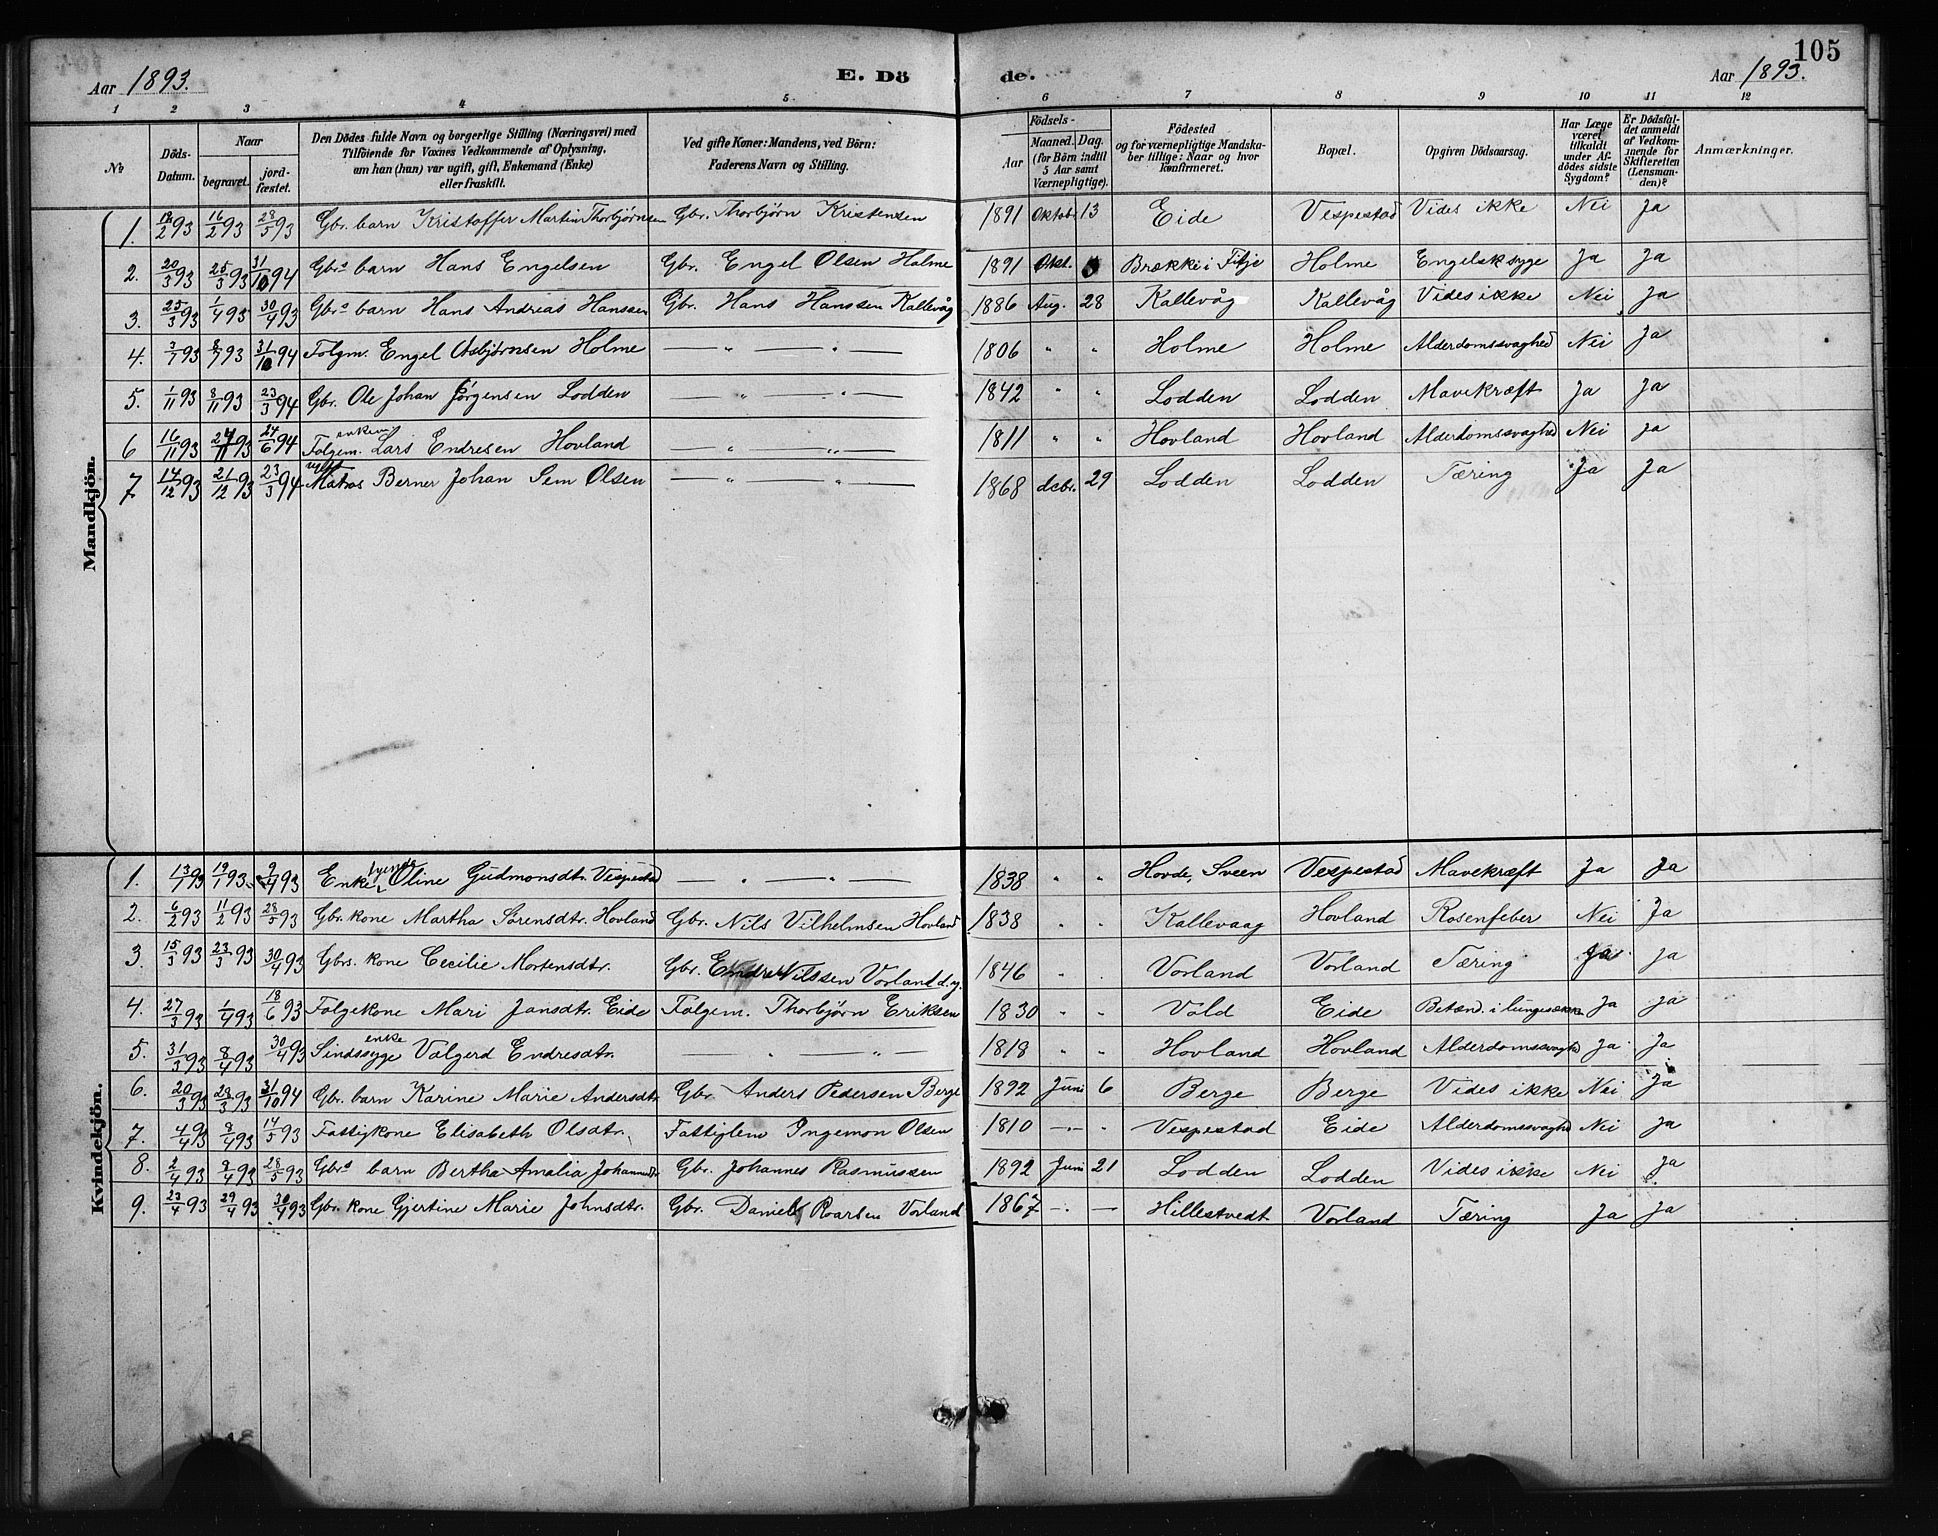 105
Aar 1893. E. Dö de. Aar 1893.
1 2 3 4 5. 6 7 8 9 10 11 12
No
Döds-Datum.
Naar
begravet.
jord-fæstet.
Den Dödes fulde Navn og borgerlige Stilling (Næringsvei) med
Tilföiende for Voxnes Vedkommende af Oplysning,
om han (hun) var ugift, gift, Enkemand (Enke)
eller fraskilt.
Ved gifte Koner: Mandens, ved Börn:
Faderens Navn og Stilling.
Födsels-
Aar
Maaned. Dag.
(for Börn indtil
5 Aar samt
Værnepligtige).
Födested
og for værnepligtige Mandska-
ber tillige: Naar og hvor
konfirmeret.
Bopæl.
Opgiven Dödsaarsag.
Har Læge
været
tilkaldt
under Af-
dödes sidste
Sygdom?
Er Dödsfal-
det anmeldt
af Vedkom-
mende for
Skifteretten
(Lensman-
den)?
Anmærkninger.
Mandkjön.
1. 12/2 93 16/2 93 28/5 93 Gbr. barn Kristoffer Martin Thorbjørnsen Gbr. Thorbjørn Kristensen 1891 Oktob. 13 Eide Vespestad Vides ikke Nei Ja
2. 20/3 93 25/3 93 31/10 94 Gbrs barn Hans Engelsen Gbr. Engel Olsen Holme 1891 Okt. Brække i Fitje Holme Engelsk syge Ja Ja
3. 25/3 93 1/4 93 30/4 93 Gbrs barn Hans Andreas Hanssen Gbr. Hans Hanssen Kallevåg 1886 Aug. 28 Kallevåg Kallevåg Vides ikke Nei Ja
4. 3/7 93 8/7 93 31/10 94 Folgm. Engel Asbjørnsen Holme — " — " — 1806 " " Holme Holme Alderdomssvaghed Nei Ja
5. 1/11 93 8/11 93 23/3 94 Gbr. Ole Johan Jörgensen Lodden — " — " — 1842 " " Lodden Lodden Mavekræft Ja Ja
6 16/11 93 24/11 93 24/6 94 Folgem. enkem. Lars Endresen Hovland — " — " — 1811 " " Hovland Hovland Alderdomssvaghed Nei Ja
7 14/12 93 21/12 93 23/3 94 ugift Matros Berner Johan Sem Olsen — " — " — 1868 dcbr. 29 Lodden Lodden Tæring Ja Ja
Kvindekjön.
1. 13/1 93 19/1 93 9/4 93 Enke Oline Gudmonsdtr. Vespestad — " — " — 1838 " " Hovde, Sveen Vespestad Mavekræft Ja Ja
2. 6/2 93 11/2 93 28/5 93 Gbr. kone Martha Sörensdtr. Hovland Gbr. Nils Vilhelmsen Hovland 1838 " " Kallevaag Hovland Rosenfeber Nei Ja
3. 15/3 93 23/3 93 30/4 93 Gbrs. kone Cecilie Mortensdtr. Gbr. Endre Nilssen Vorland d.y. 1846 " " Vorland Vorland Tæring Ja Ja
4. 27/3 93 1/4 93 18/6 93 Folgekone Mari Jansdtr. Eide Folgem. Thorbjørn Eriksen 1830 " " Vold Eide Betænd. i lungesækken Ja Ja
5. 31/3 93 8/4 93 30/4 93 Sindssyge enke Valgerd Endresdtr. — " — " — 1818 " " Hovland Hovland Alderdomssvaghed Ja Ja
6. 20/3 93 28/3 93 31/10 94 Gbr. barn Karine Marie Andersdtr. Gbr. Anders Pedersen Berge 1892 Juni 6 Berge Berge Vides ikke Nei Ja
7. 4/4 93 8/4 93 14/5 93 Fattigkone Elisabeth Olsdtr. Fattiglem Ingemon Olsen 1810 — " — " Vespestad Eide Alderdomssvaghed Nei Ja
8. 2/4 93 8/4 93 28/5 93 Gbrs barn Bertha Amalia Johannesdtr. Gbr. Johannes Rasmussen 1892 Juni 21 Lodden Lodden Vides ikke Nei Ja
9. 23/4 93 29/4 93 30/4 93 Gbr. kone Gjertine Marie Johnsdtr. Gbr. Daniel Roarsen Vorland 1867 — " — Hillestvedt Vorland Tæring Ja Ja